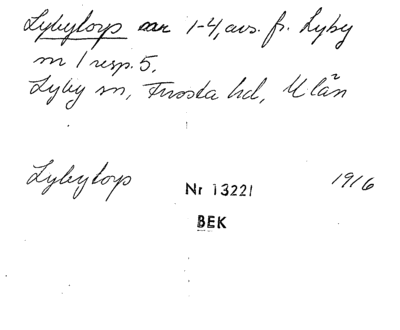 Lybytorp nr 1-4, avs. fr. Lyby
nr 1 resp. 5.
Lyby sn, Frosta hd, M län
Lybytorp
Nr 13221
1916
BEK